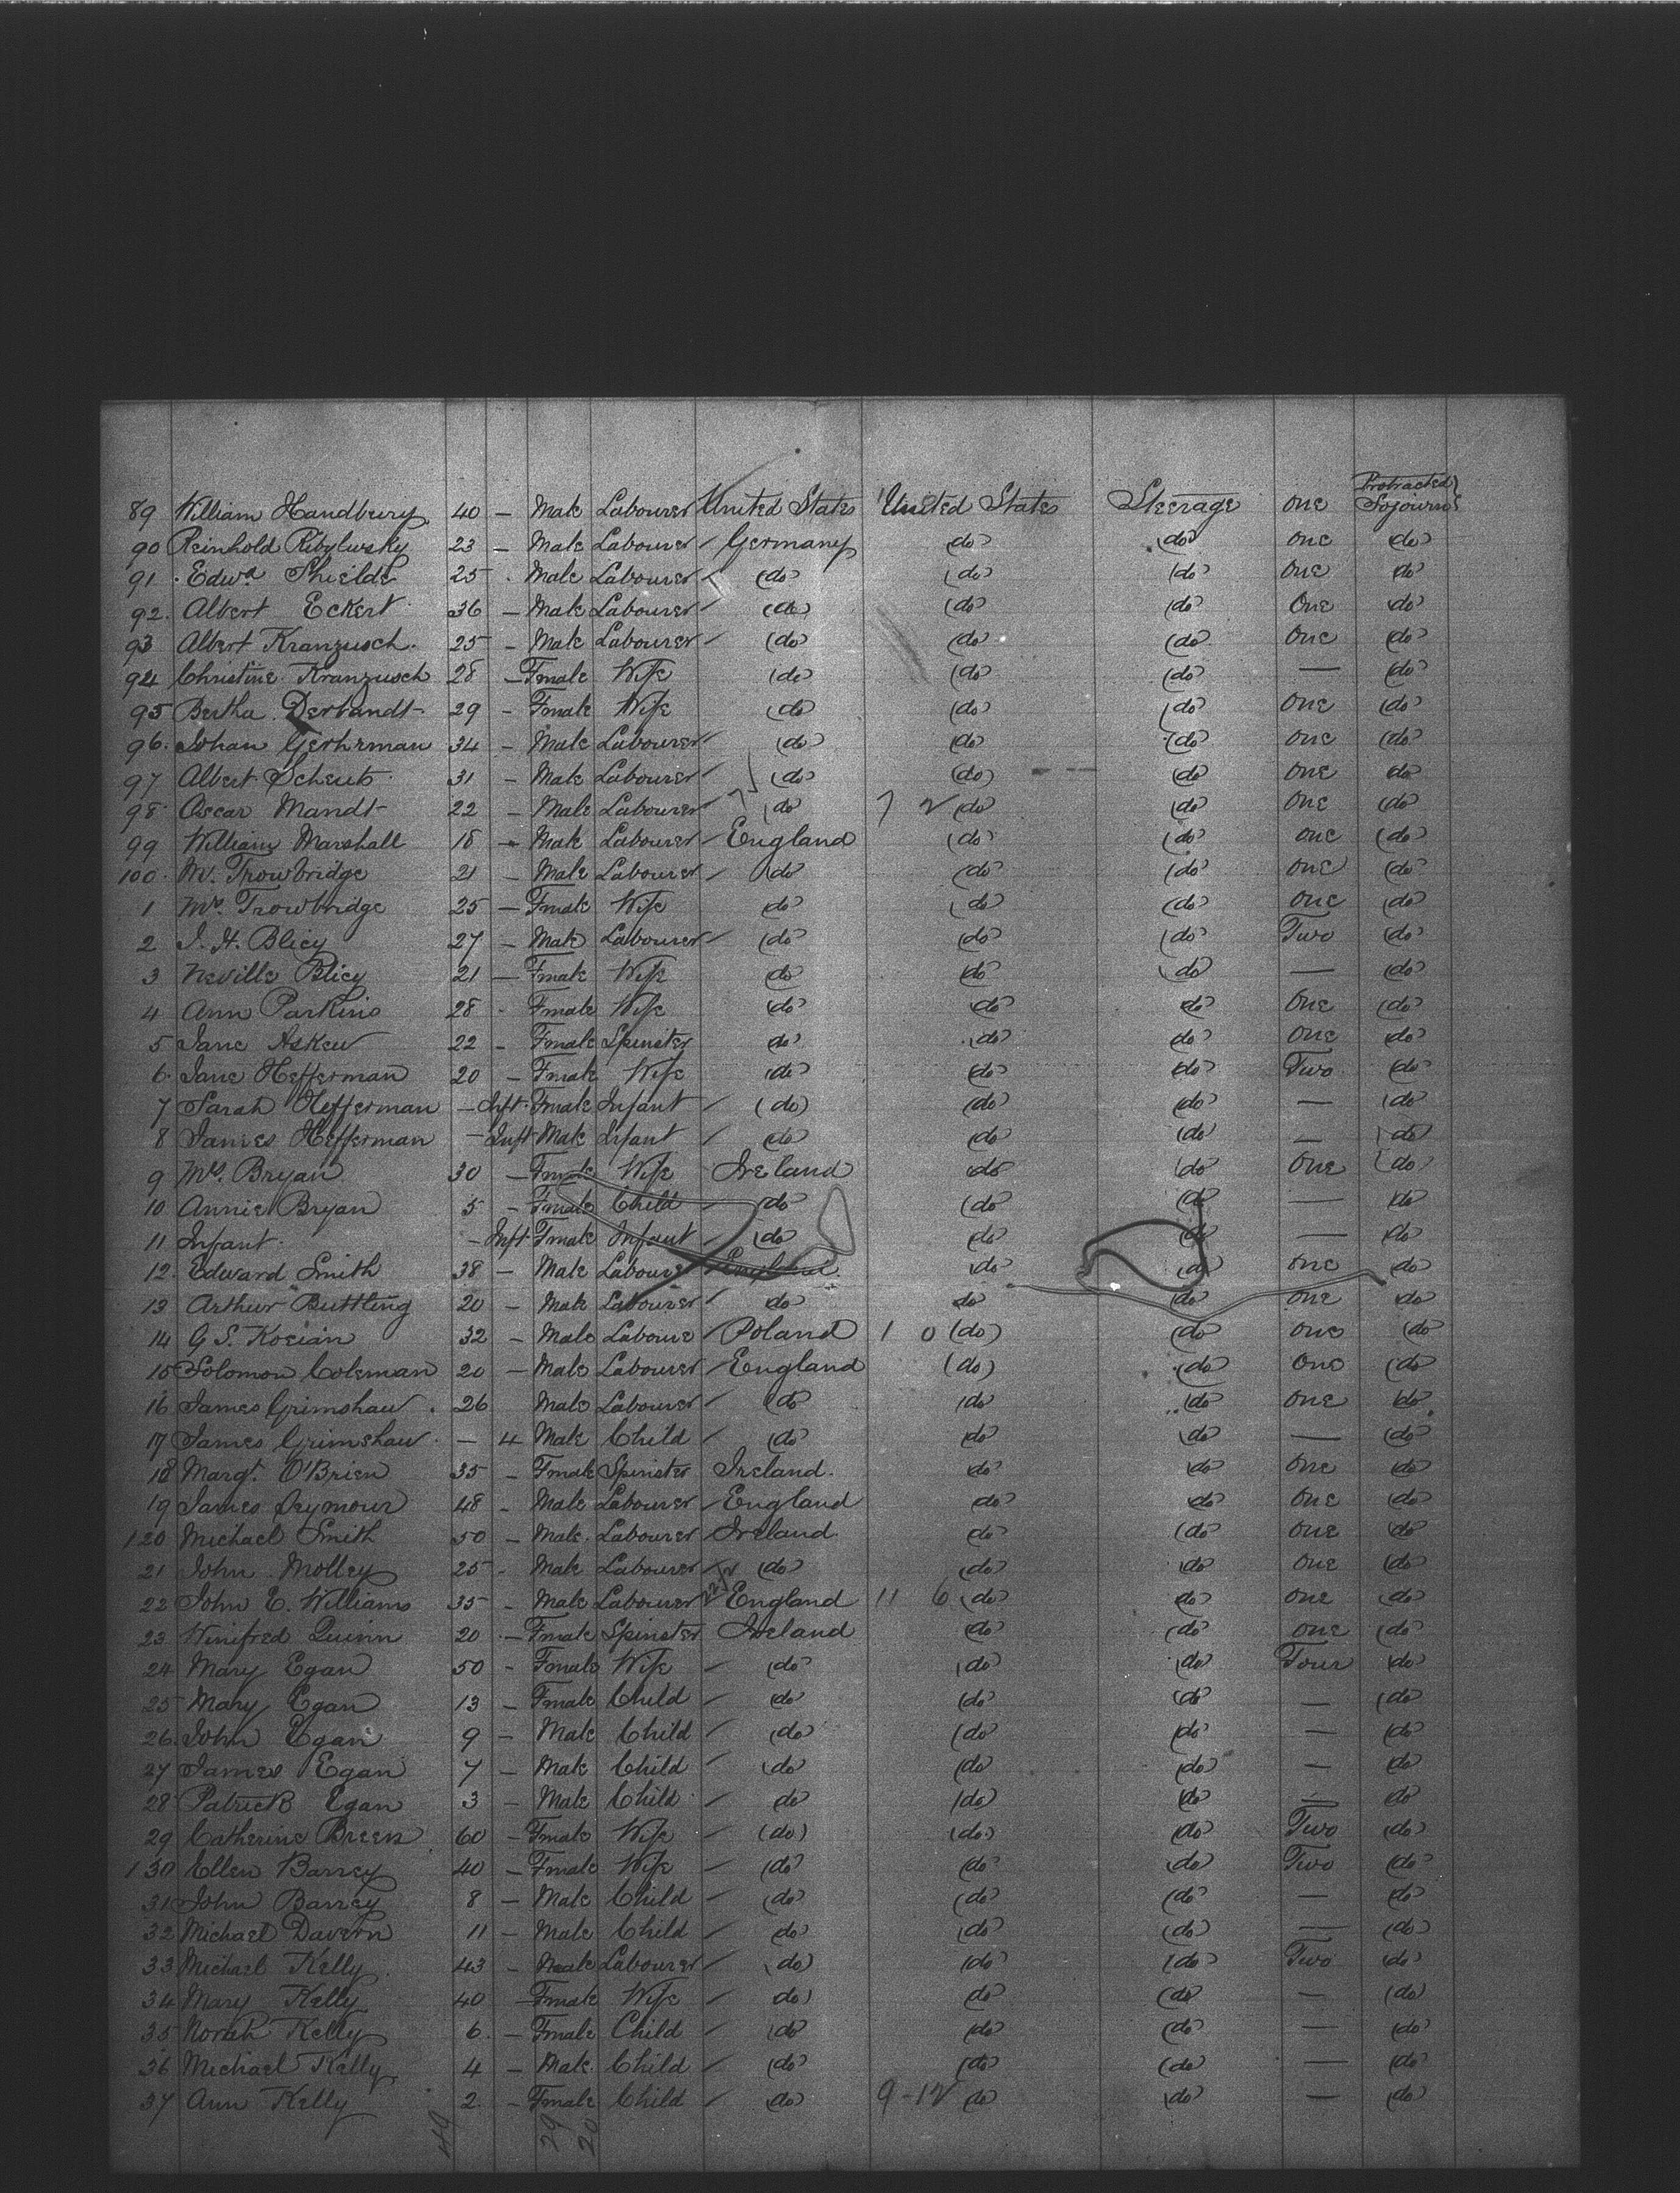 Protracted }
89 William Handbury 40 — Male Labourer United States United States Steerage one Sojourn
90 Reinhold 23 — Male Labourer Germany (do) (do) one (do)
91 Edwd Shields 25 . Male Labourer (do) (do) (do) one do
92 Albert Eckert 36 — Male Labourer (do) (do) (do) one (do)
93 Albert Kranzusch 25 — Male Labourer (do) (do) (do) one (do)
94 Christine Kranzusch 28 — Fmale Wife (do) (do) (do) — (do)
95 Bertha Derbandt 29 — Fmale Wife (do) (do) (do) one (do)
96 Johan Gerhrman 34 — Male Labourer (do) (do) (do) one (do)
97 Albert Scheuts 31 — Male Labourer (do) (do) (do) one do
98 Oscar Mandt 22 — Male Labourer (do) 7 2 (do) (do) one (do)
99 William Marshall 18 — Male Labourer England (do) (do) one (do)
100 M. Trowbridge 21 — Male Labourer (do) (do) (do) one (do)
1 Mrs. Trowbridge 25 — Fmale Wife do (do) (do) one (do)
2 J. H. Blicy 27 — Male Labourer (do) (do) (do) Two (do)
3 Neville Blicy 21 — Fmale Wife do do (do) — (do)
4 Ann Parkins 28 - Fmale Wife (do) (do) do one (do)
5 Jane Askew 22 — Fmale Spinster do (do) do one do
6 Jane Hefferman 20 — Fmale Wife (do) do do Two (do)
7 Sarah Hefferman — Inft Fmale Infant (do) (do) (do) — (do)
8 James Hefferman — Inft Male Infant do (do) (do) — (do)
9 Mrs. Bryan 30 — Fmale Wife Ireland do (do) one (do)
10 Annie Bryan 5 — Fmale Child (do) (do) do — do
11 Infant — Inft Fmale Infant (do) do do — do
12 Edward Smith 38 — Male Labourer England (do) (do) one (do)
13 Arthur Buttling 20 — Male Labourer do do (do) one do
14 G S. Kosian 32 — Male Laboure Poland 1 0 (do) (do) one (do)
15 Solomon Coleman 20 — Male Labourer England (do) (do) one (do)
16 James Grimshaw 26 Male Labourer (do) (do) (do) one do
17 James Grimshaw — 4 Male Child (do) do (do) — (do)
18 Margt. O'Brien 35 — Fmale Spinster Ireland do (do) one do
19 James Seymour 48 — Male Labourer England do do one (do)
120 Michael Smith 50 — Male Labourer Ireland do (do) one (do)
21 John Molley 25 - Male Labourer (do) (do) do one (do)
22 John E. Williams 35 — Male Labourer England 11 6 (do) do one (do)
23 Winifred Quinn 20 — Fmale Spinster Ireland do (do) one (do)
24 Mary Egan 50 - Female Wife (do) (do) (do) Four do
25 Mary Egan 13 — Fmale Child do (do) (do) — (do)
26 John Egan 9 — Male Child (do) (do) do — (do)
27 James Egan 7 — Male Child (do) (do) (do) — do
28 Patrick Egan 3 — Male Child do (do) do — do
29 Catherine Breen 60 — Fmale Wife (do) (do) (do) Two (do)
130 Ellen Barrey 40 — Fmale Wife (do) (do) (do) Two (do)
31 John Barrey 8 — Male Child (do) (do) (do) — do
32 Michael Davern 11 — Male Child do (do) (do) — (do)
33 Michael Kelly 43 — Male Labourer (do) (do) (do) Two (do)
34 Mary Kelly 40 — Fmale Wife do) do (do) — (do)
35 Norah Kelly 6 — Fmale Child (do) do (do) — (do)
36 Michael Kelly 4 — Male Child (do) (do) (do) — (do)
37 Ann Kelly 2 — Fmale Child (do) 9-12 do (do) — (do)
49 29 20